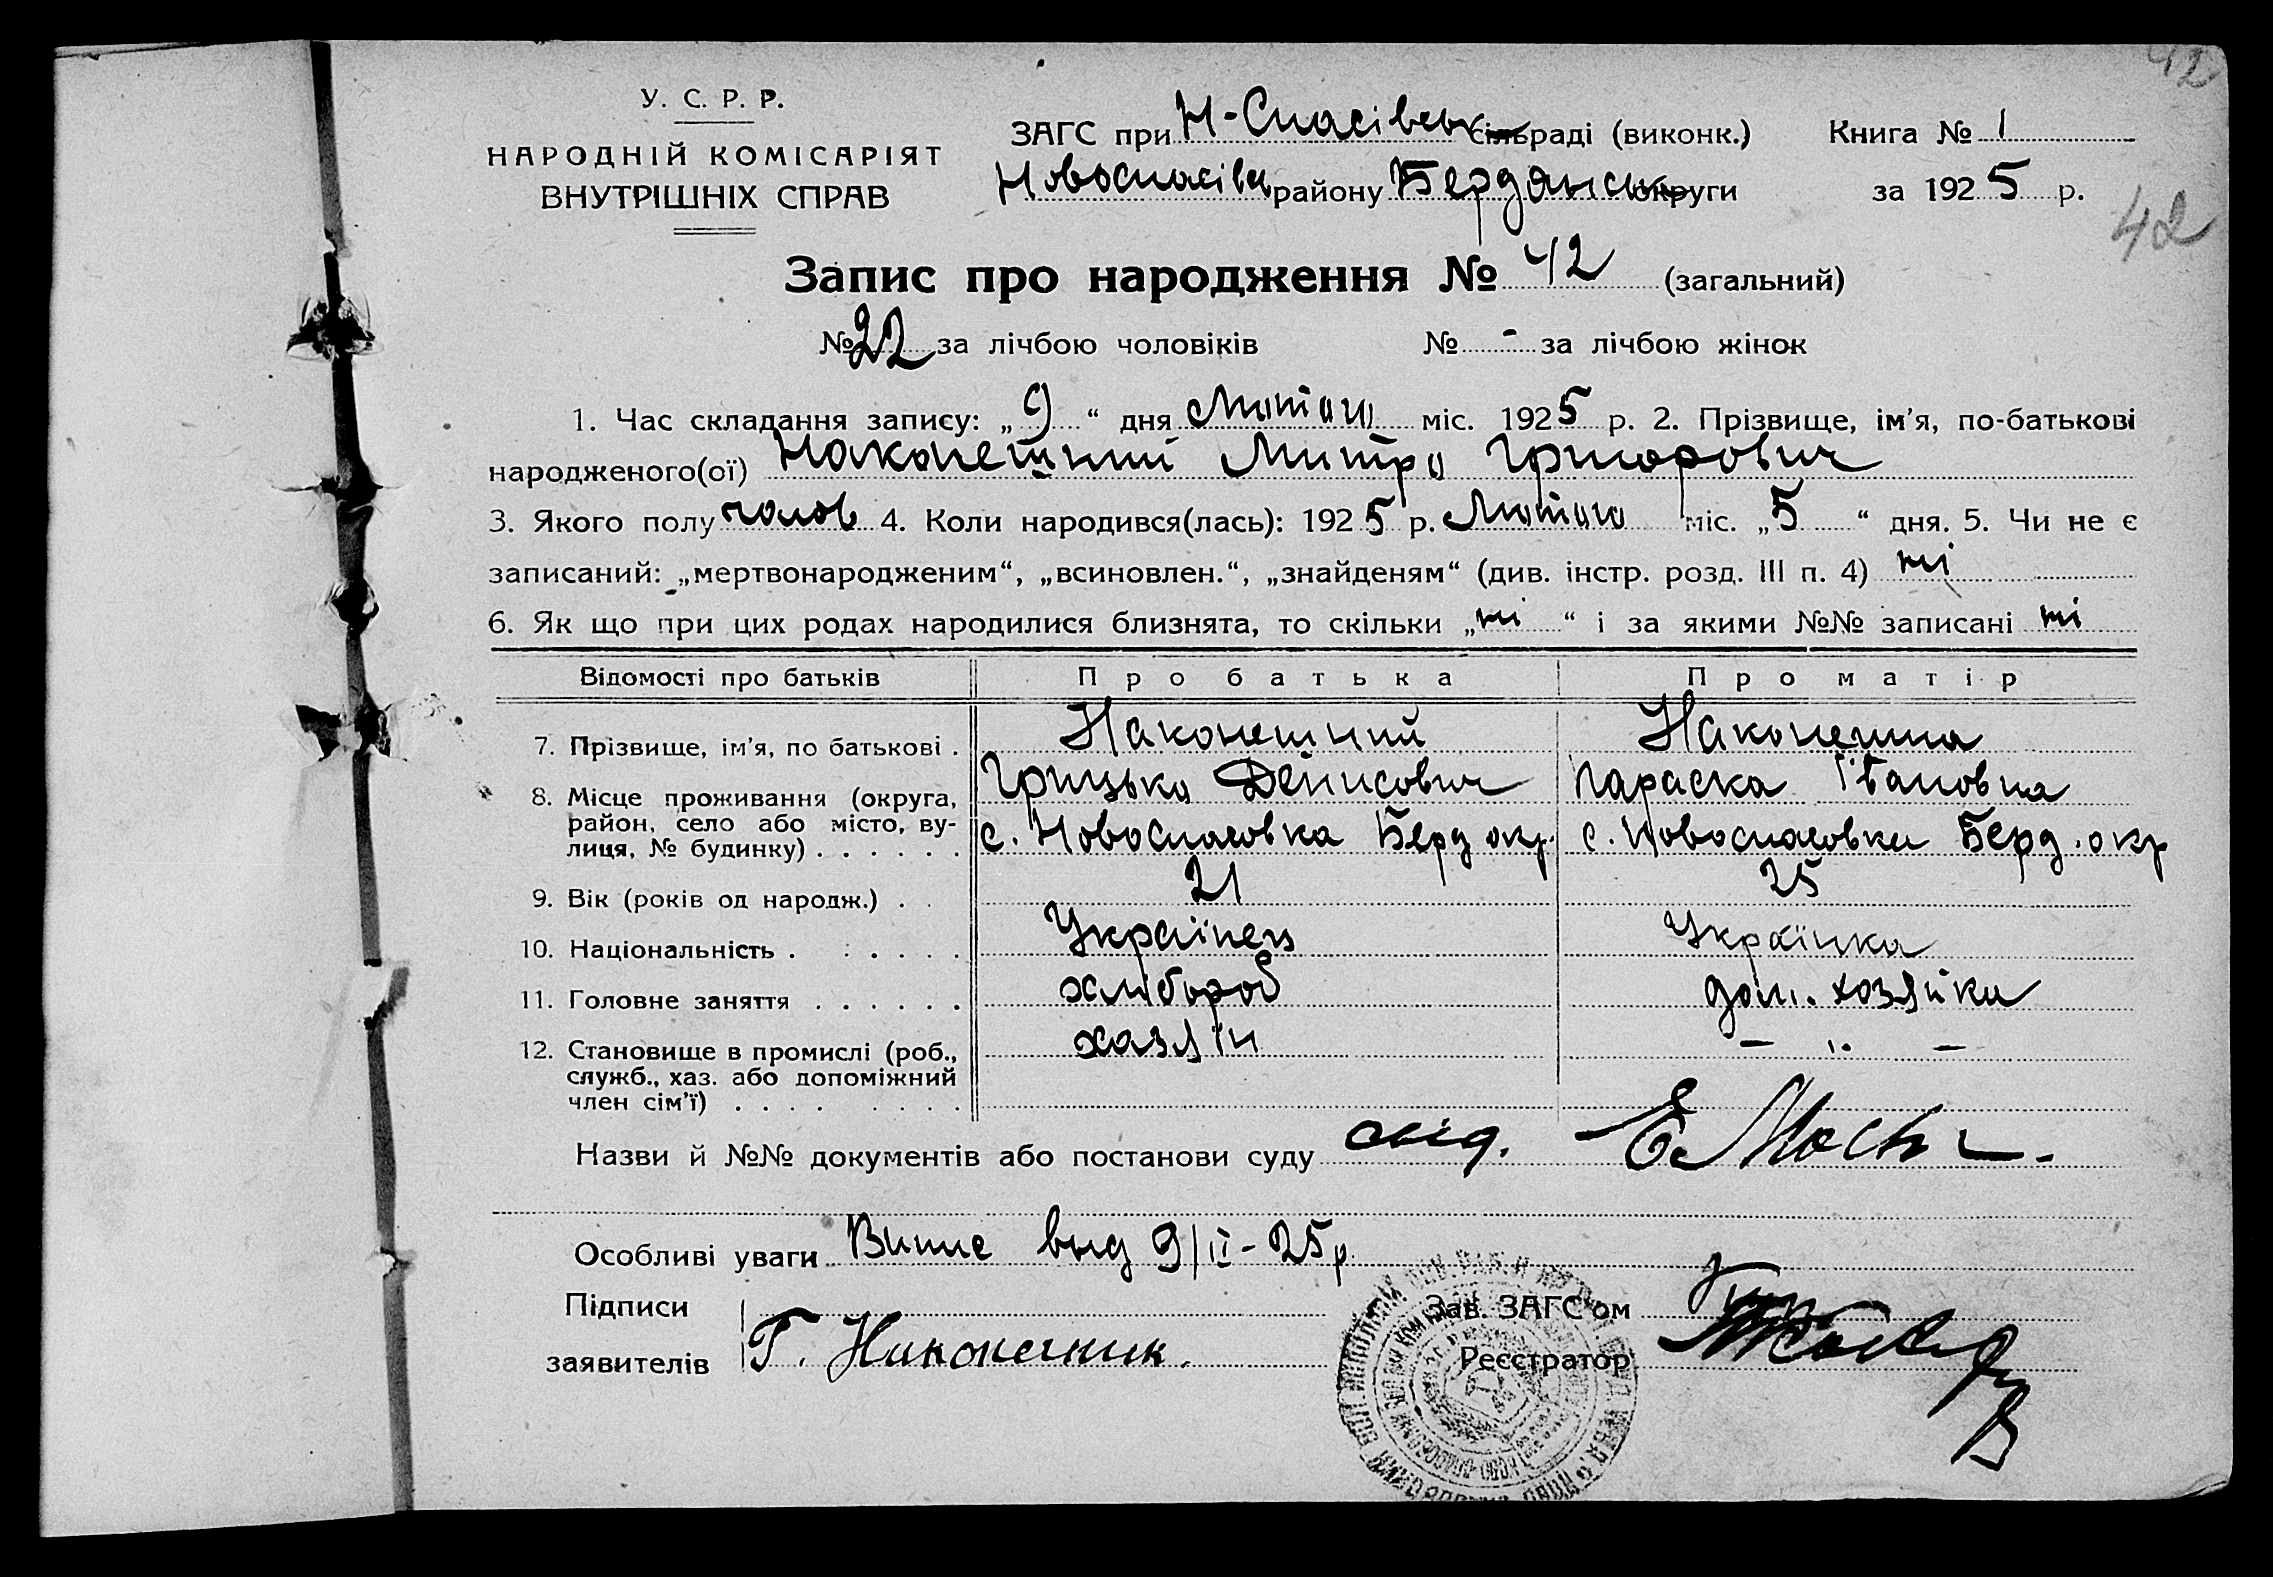 42
У. С. Р. Р.
НАРОДНІЙ КОМІСАРІЯТ
ВНУТРІШНІХ СПРАВ
ЗАГС при Н-Спасівськ сільраді (виконк.) Книга № 1
Новоспасівськ району Бердянськ округи за 1925 р.
42
Запис про народження № 42 (загальний)
№ 22 за лічбою чоловіків № - за лічбою жінок
1. Час складання запису: „9“ дня Лютого міс. 1925 р. 2. Прізвище, ім'я, по-батькові
народженого(ої) Наконешний Митро Григорович
3. Якого полу чолов 4. Коли народився(лась): 1925 р. Лютого міс. „5“ дня. 5. Чи не є
записаний: „мертвонародженим“, „всиновлен.“, „знайденям“ (див. інстр. розд. III п. 4) ні
6. Як що при цих родах народилися близнята, то скільки „ні“ і за якими №№ записані ні
Відомості про батьків Про батька Про матір
7. Прізвище, ім'я, по батькові . Наконешний Наконешна
Грицько Денисович Параска Івановна
8. Місце проживання (округа,
район, село або місто, ву-
лиця, № будинку) . . . . . . с. Новоспасовка Берд окр. с. Новоспасовка Берд. окр
9. Вік (років од народж.) . . 21 25
10. Національність . : . . . . Українець Українка
11. Головне заняття . . . . . . хлібороб дом. хозяйка
12. Становище в промислі (роб.,
служб., хаз. або допоміжний
член сім'ї) . . . . . . . . хазяїн — „ —
Назви й №№ документів або постанови суду
Особливі уваги Випис выд 9/II-25р.
Підписи
заявителів Г. Наконечник.
Зав. ЗАГС'ом
Реєстратор